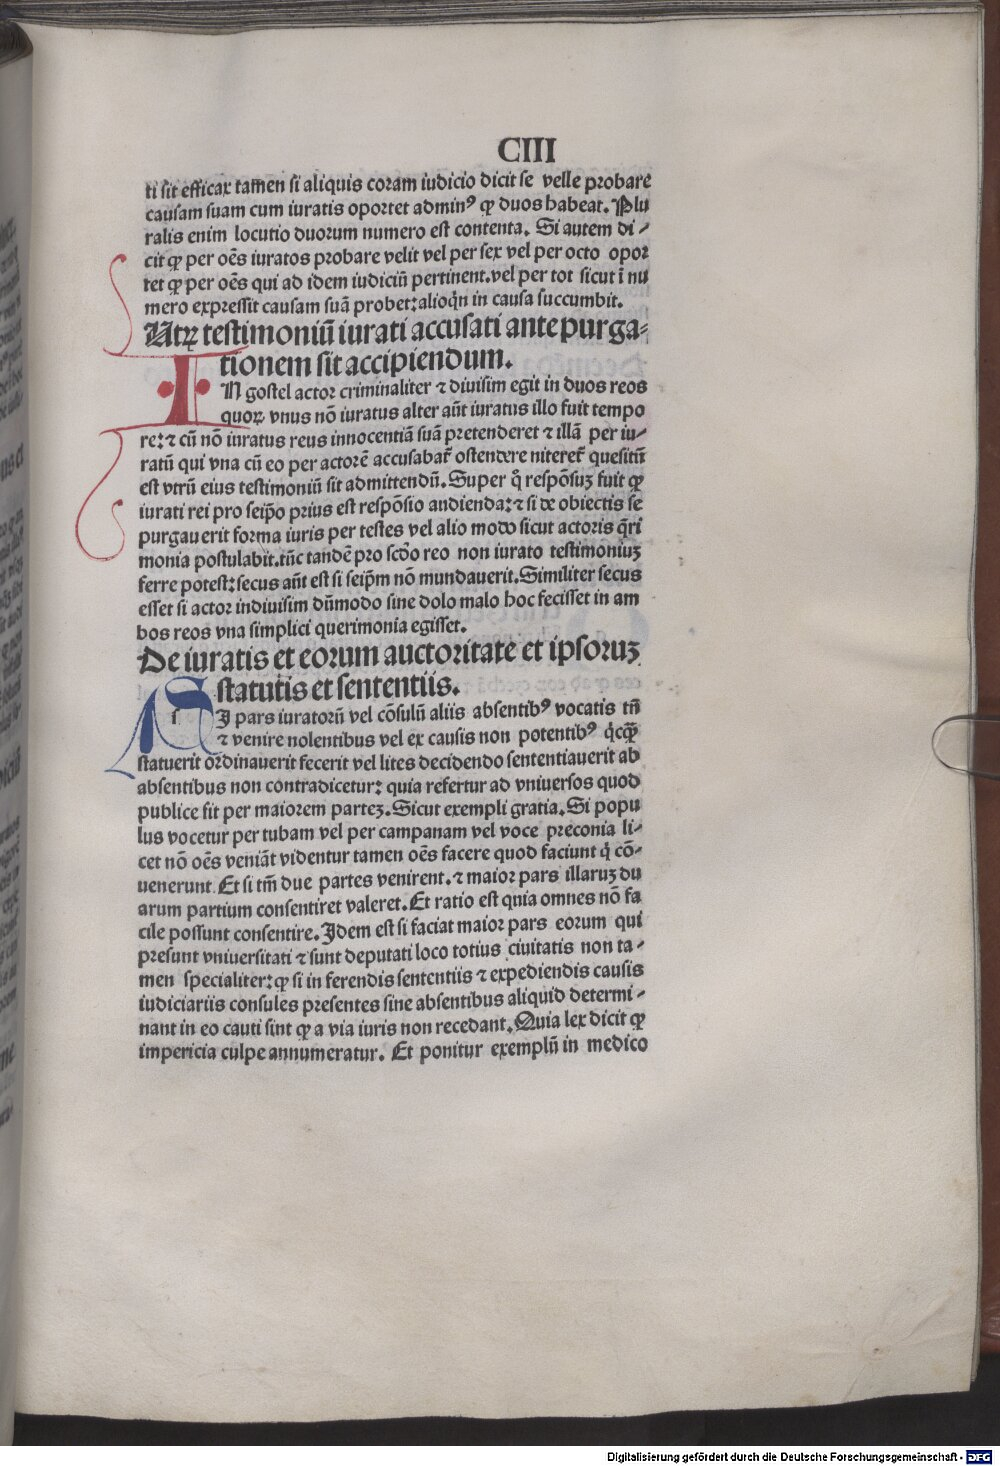 CIII
ti sit efficax tamen si aliquis coram iudicio dicit se velle probare
causam suam cum iuratis oportet adminꝰ ꝙ duos habeat. Plu
ralis enim locutio duorum numero est contenta. Si autem di⸗
cit ꝙ per oēs iuratos probare velit vel per sex vel per octo opor
tet ꝙ per oēs qui ad idem iudiciū pertinent.vel per tot sicut ī nu
mero expressit causam suā probet:alioq̄n in causa succumbit.
Utꝝ testimoniū iurati accusati ante purga⸗
tionem sit accipiendum.
IN gostel actor criminaliter ⁊ diuisim egit in duos reos
quoꝝ vnus nō iuratus alter aūt iuratus illo fuit tempo
re:⁊ cū nō iuratus reus innocentiā suā pretenderet ⁊ illā per iu⸗
ratū qui vna cū eo per actorē accusabat̄ ostendere niteret̄ quesitū
est vtrū eius testimoniū sit admittendū. Super q̊ respōsuꝫ fuit ꝙ
iurati rei pro seip̄o prius est respōsio audienda:⁊ si de obiectis se
purgauerit forma iuris per testes vel alio modo sicut actoris q̄ri
monia postulabit.tūc tandē pro scd̄o reo non iurato testimoniuꝫ
ferre potest:secus aūt est si seip̄m nō mundauerit.Similiter secus
esset si actor indiuisim dūmodo sine dolo malo hoc fecisset in am
bos reos vna simplici querimonia egisset.
De iuratis et eorum auctoritate et ipsoruꝫ
statutis et sententiis.
SI pars iuratorū vel cōsulū aliis absentibꝰ vocatis tn̄
⁊ venire nolentibus vel ex causis non potentibꝰ q̇cq̄ꝫ
statuerit ordinauerit fecerit vel lites decidendo sententiauerit ab
absentibus non contradicetur: quia refertur ad vniuersos quod
publice fit per maiorem parteꝫ. Sicut exempli gratia. Si popu
lus vocetur per tubam vel per campanam vel voce preconia li⸗
cet nō oēs veniāt videntur tamen oēs facere quod faciunt q̇ cō⸗
uenerunt. Et si tm̄ due partes venirent. ⁊ maior pars illaruꝫ du
arum partium consentiret valeret. Et ratio est quia omnes nō fa
cile possunt consentire. Idem est si faciat maior pars eorum qui
presunt vniuersitati ⁊ sunt deputati loco totius ciuitatis non ta⸗
men specialiter:ꝙ si in ferendis sententiis ⁊ expediendis causis
iudiciariis consules presentes sine absentibus aliquid determi⸗
nant in eo cauti sint ꝙ a via iuris non recedant. Quia lex dicit ꝙ
impericia culpe annumeratur. Et ponitur exemplū in medico
Digitalisierung gefördert durch die Deutsche Forschungsgemeinschaft - DFG